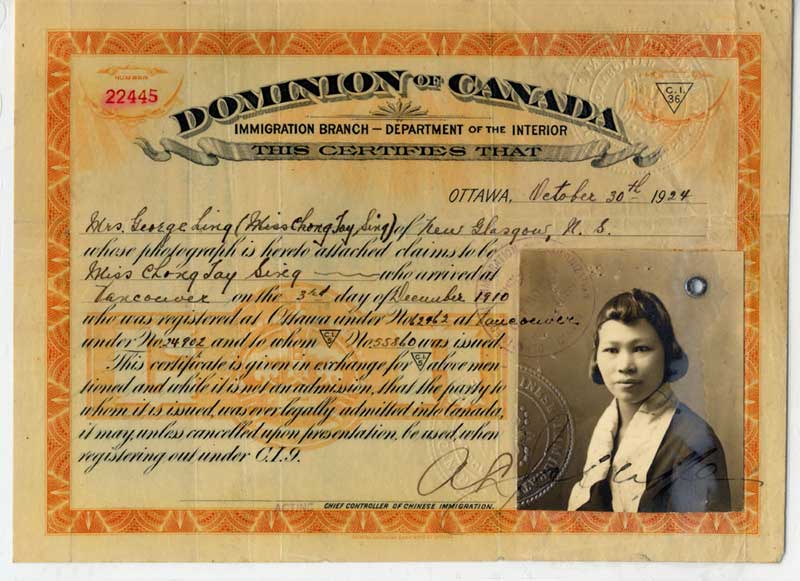 NUMBER
22445
C.I.
36
DOMINION OF CANADA
IMMIGRATION BRANCH — DEPARTMENT OF THE INTERIOR
THIS CERTIFIES THAT
OTTAWA, October 30th 1924
Mrs. George Ling (Miss Chong Tay Sing) of New Glasgow, N. S.
whose photograph is hereto attached claims to be
Miss Chong Tay Sing who arrived at
Vancouver on the 3rd day of December 1910
who was registered at Ottawa under No. 62962 at Vancouver
under No. 74902 and to whom C.I. 5 No. 55860 was issued.
This certificate is given in exchange for C.I. 5 above men-
tioned and while it is not an admission, that the party to
whom it is issued, was ever legally admitted into Canada,
it may, unless cancelled upon presentation, be used, when
registering out, under C.I.9.
ACTING CHIEF CONTROLLER OF CHINESE IMMIGRATION.